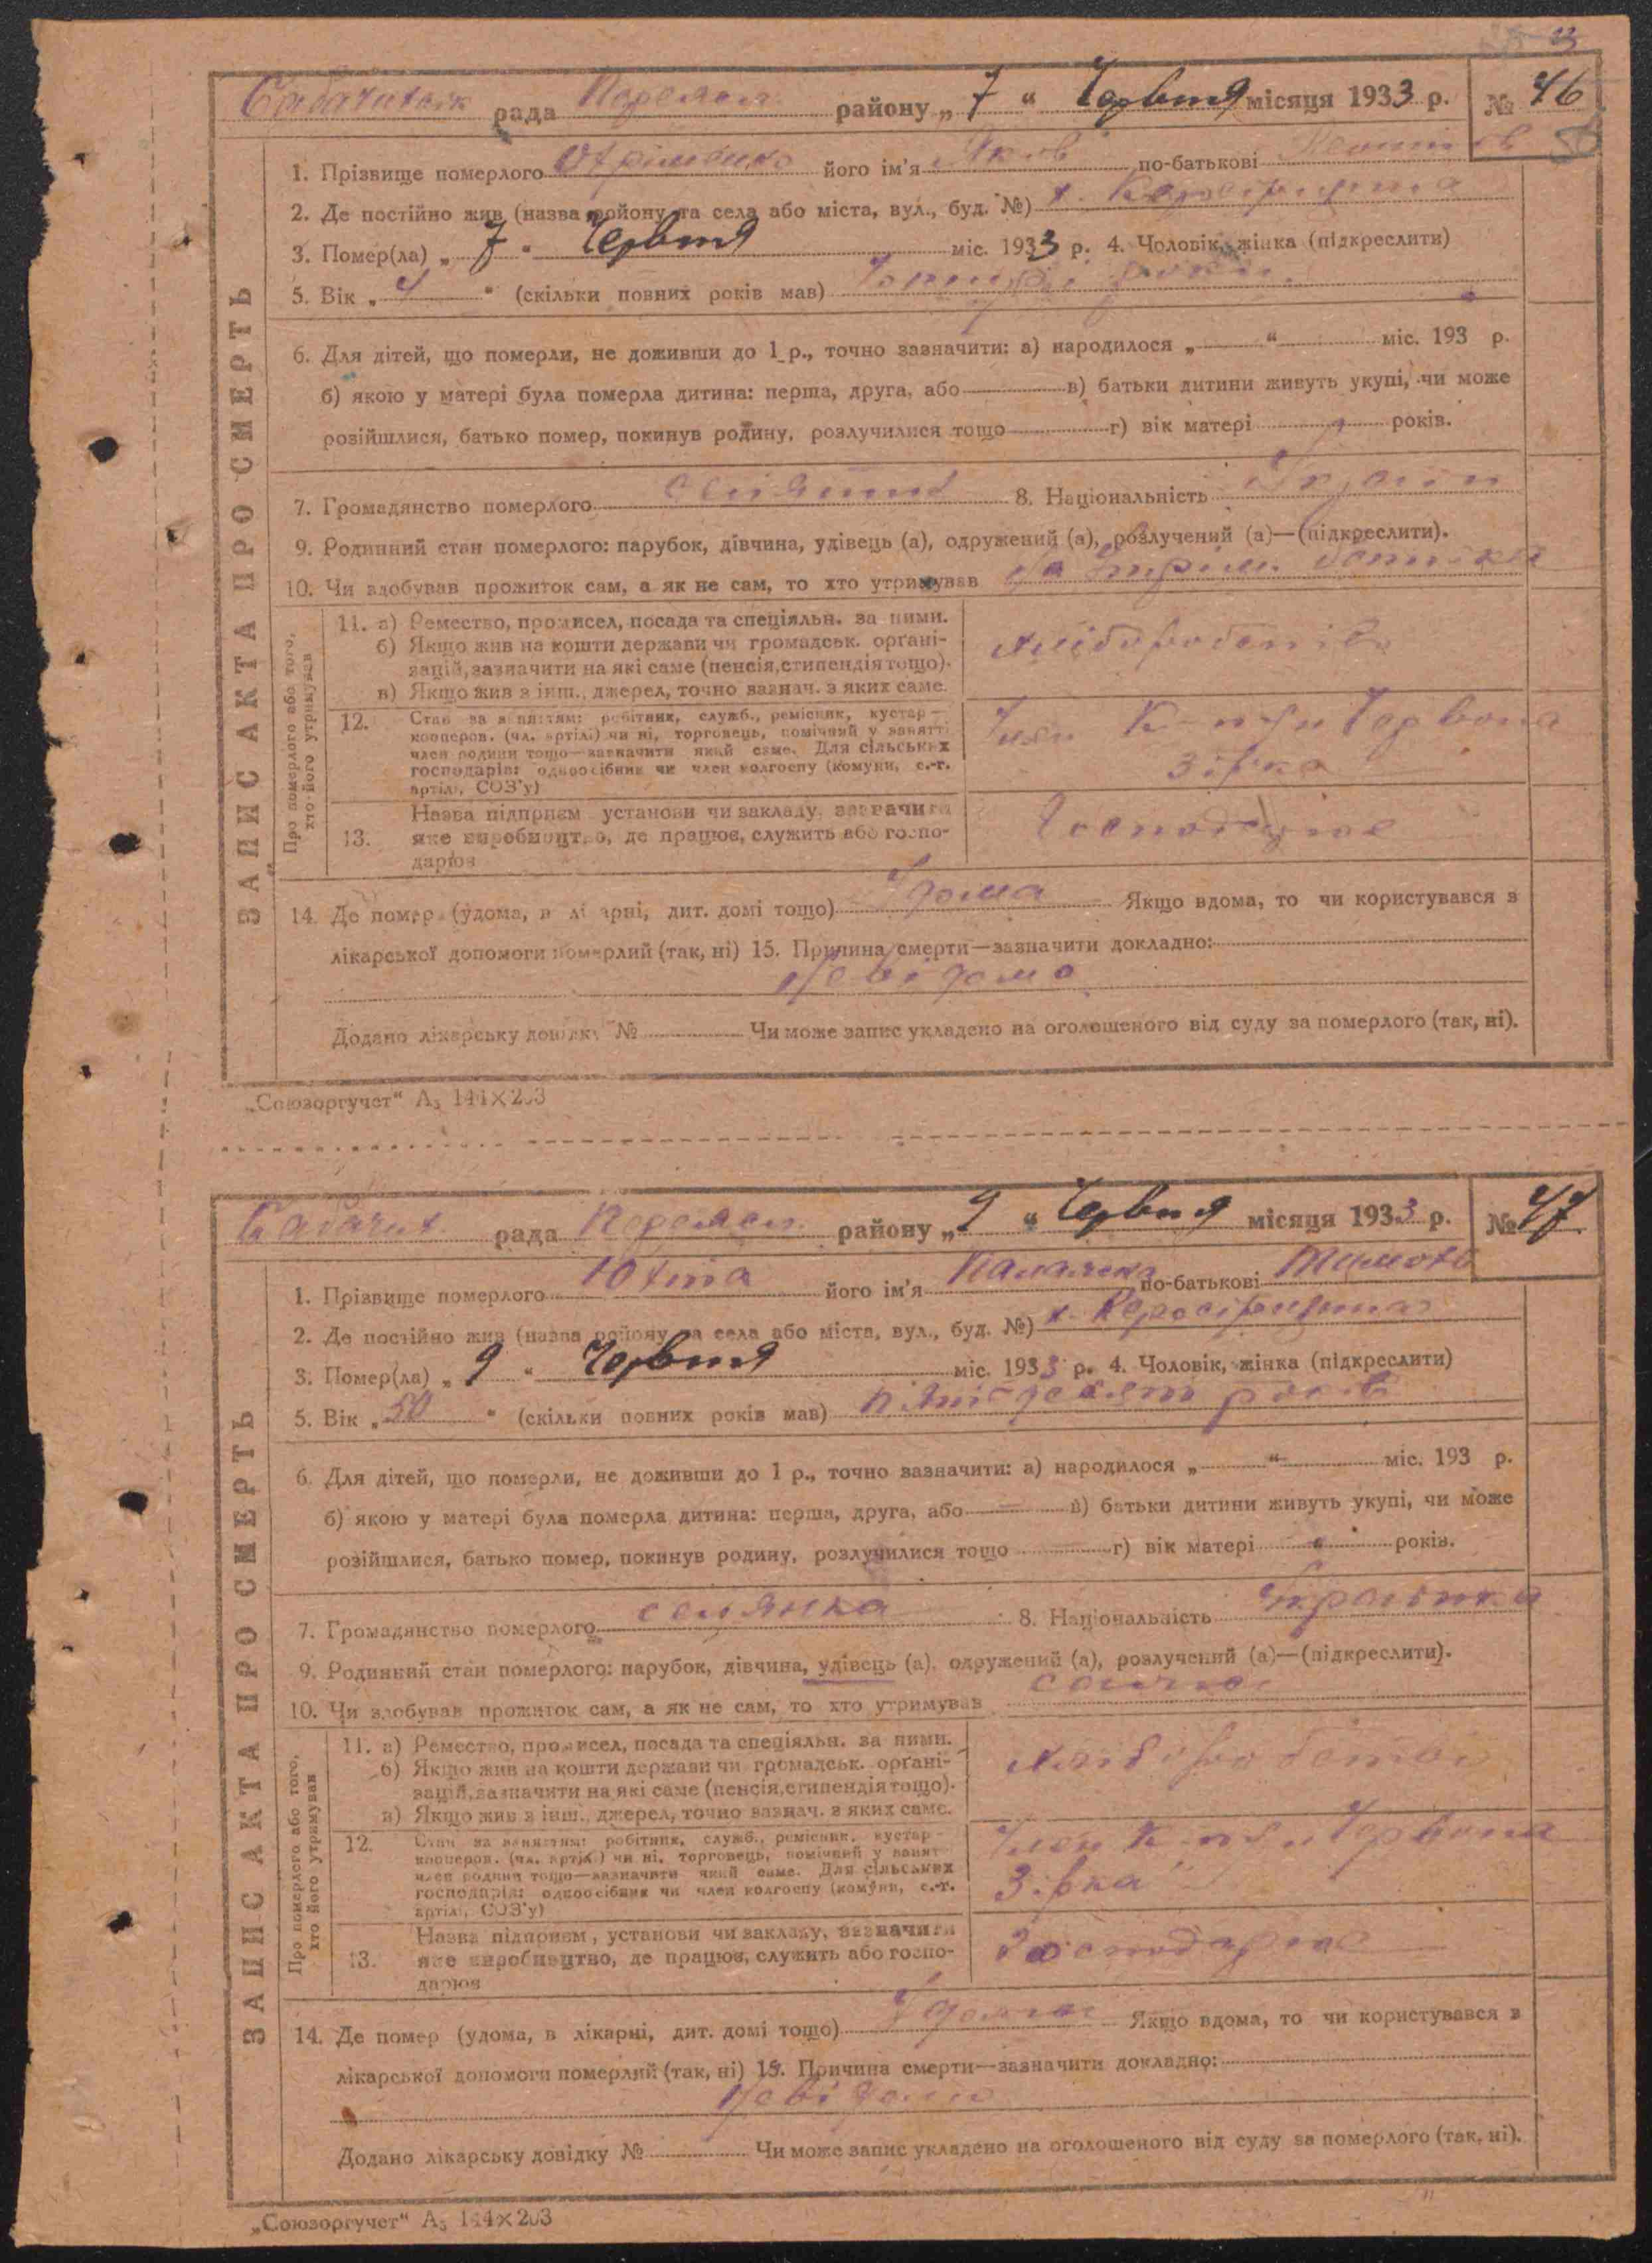 рада району „ 7 “ Червня місяця 1933 р. № 46
1. Прізвище померлого його ім'я Яків по-батькові
2. Де постійно жив (назва району та села або міста, вул., буд. №) х.
3. Помер(ла) „ 7 “ Червня міс. 1933 р. 4. Чоловік, жінка (підкреслити)
5. Вік „ 4 “ (скільки повних років мав) Чотирі роки
6. Для дітей, що померли, не доживши до 1 р., точно зазначити: а) народилося „ “ міс. 193 р.
б) якою у матері була померла дитина: перша, друга, або в) батьки дитини живуть укупі, чи може
розійшлися, батько помер, покинув родину, розлучилися тощо г) вік матері років.
7. Громадянство померлого селянин 8. Національність Україн
9. Родинний стан померлого: парубок, дівчина, удівець (а), одружений (а), розлучений (а)—(підкреслити).
10. Чи здобував прожиток сам, а як не сам, то хто утримував На втрим. батька
ЗАПИС АКТА ПРО СМЕРТЬ
Про померлого або того, хто його утримував
11. а) Ремество, промисел, посада та спеціяльн. за ними.
б) Якщо жив на кошти держави чи громадськ. орґані-
зацій, зазначити на які саме (пенсія, стипендія тощо).
в) Якщо жив з інш., джерел, точно вазнач. з яких саме.
12. Стан за заняттям: робітник, служб., ремісник, кустар—
кооперов. (чл. артілі) чи ні, торговець, помічний у занятті
член родини тощо—зазначити який саме. Для сільських
господарів: одноосібник чи член колгоспу (комуни, с.-г.
артілі, СОЗ'у)
Член К-пси Червона
Зірка
13. Назва підприєм установи чи закладу, зазначити
яке виробництво, де працює, служить або госпо-
дарює
Господарює
14. Де помер (удома, в лікарні, дит. домі тощо) Удома Якщо вдома, то чи користувався з
лікарської допомоги померлий (так, ні) 15. Причина смерти—зазначити докладно:
Невідома
Додано лікарську довідку № Чи може запис укладено на оголошеного від суду за померлого (так, ні).
„Союзоргучет“ А₅ 144×203
рада району „ 9 “ Червня місяця 1933 р. № 47
1. Прізвище померлого Юхта його ім'я Палажка по-батькові
2. Де постійно жив (назва району та села або міста, вул., буд. №) х.
3. Помер(ла) „ 9 “ Червня міс. 1933 р. 4. Чоловік, жінка (підкреслити)
5. Вік „ 50 “ (скільки повних років мав) пятьдесят років
6. Для дітей, що померли, не доживши до 1 р., точно зазначити: а) народилося „ “ міс. 193 р.
б) якою у матері була померла дитина: перша, друга, або в) батьки дитини живуть укупі, чи може
розійшлися, батько помер, покинув родину, розлучилися тощо г) вік матері років.
7. Громадянство померлого селянка 8. Національність Українка
9. Родинний стан померлого: парубок, дівчина, удівець (а), одружений (а), розлучений (а)—(підкреслити).
10. Чи здобував прожиток сам, а як не сам, то хто утримував
ЗАПИС АКТА ПРО СМЕРТЬ
Про померлого або того, хто його утримував
11. а) Ремество, промисел, посада та спеціяльн. за ними.
б) Якщо жив на кошти держави чи громадськ. орґані-
зацій, зазначити на які саме (пенсія, стипендія тощо).
в) Якщо жив з інш., джерел, точно вазнач. з яких саме.
12. Стан за заняттям: робітник, служб., ремісник, кустар
кооперов. (чл. артілі) чи ні, торговець, помічний у занятті
член родини тощо—зазначити який саме. Для сільських
господарів: одноосібник чи член колгоспу (комуни, с.-г.
артілі, СОЗ'у)
Член К-пси Червона
Зірка
13. Назва підприєм, установи чи закладу, зазначити
яке виробництво, де працює, служить або госпо-
дарює
Господарює
14. Де помер (удома, в лікарні, дит. домі тощо) Удома Якщо вдома, то чи користувався з
лікарської допомоги померлий (так, ні) 15. Причина смерти—зазначити докладно:
Невідомо
Додано лікарську довідку № Чи може запис укладено на оголошеного від суду за померлого (так, ні).
„Союзоргучет“ А₅ 144×203